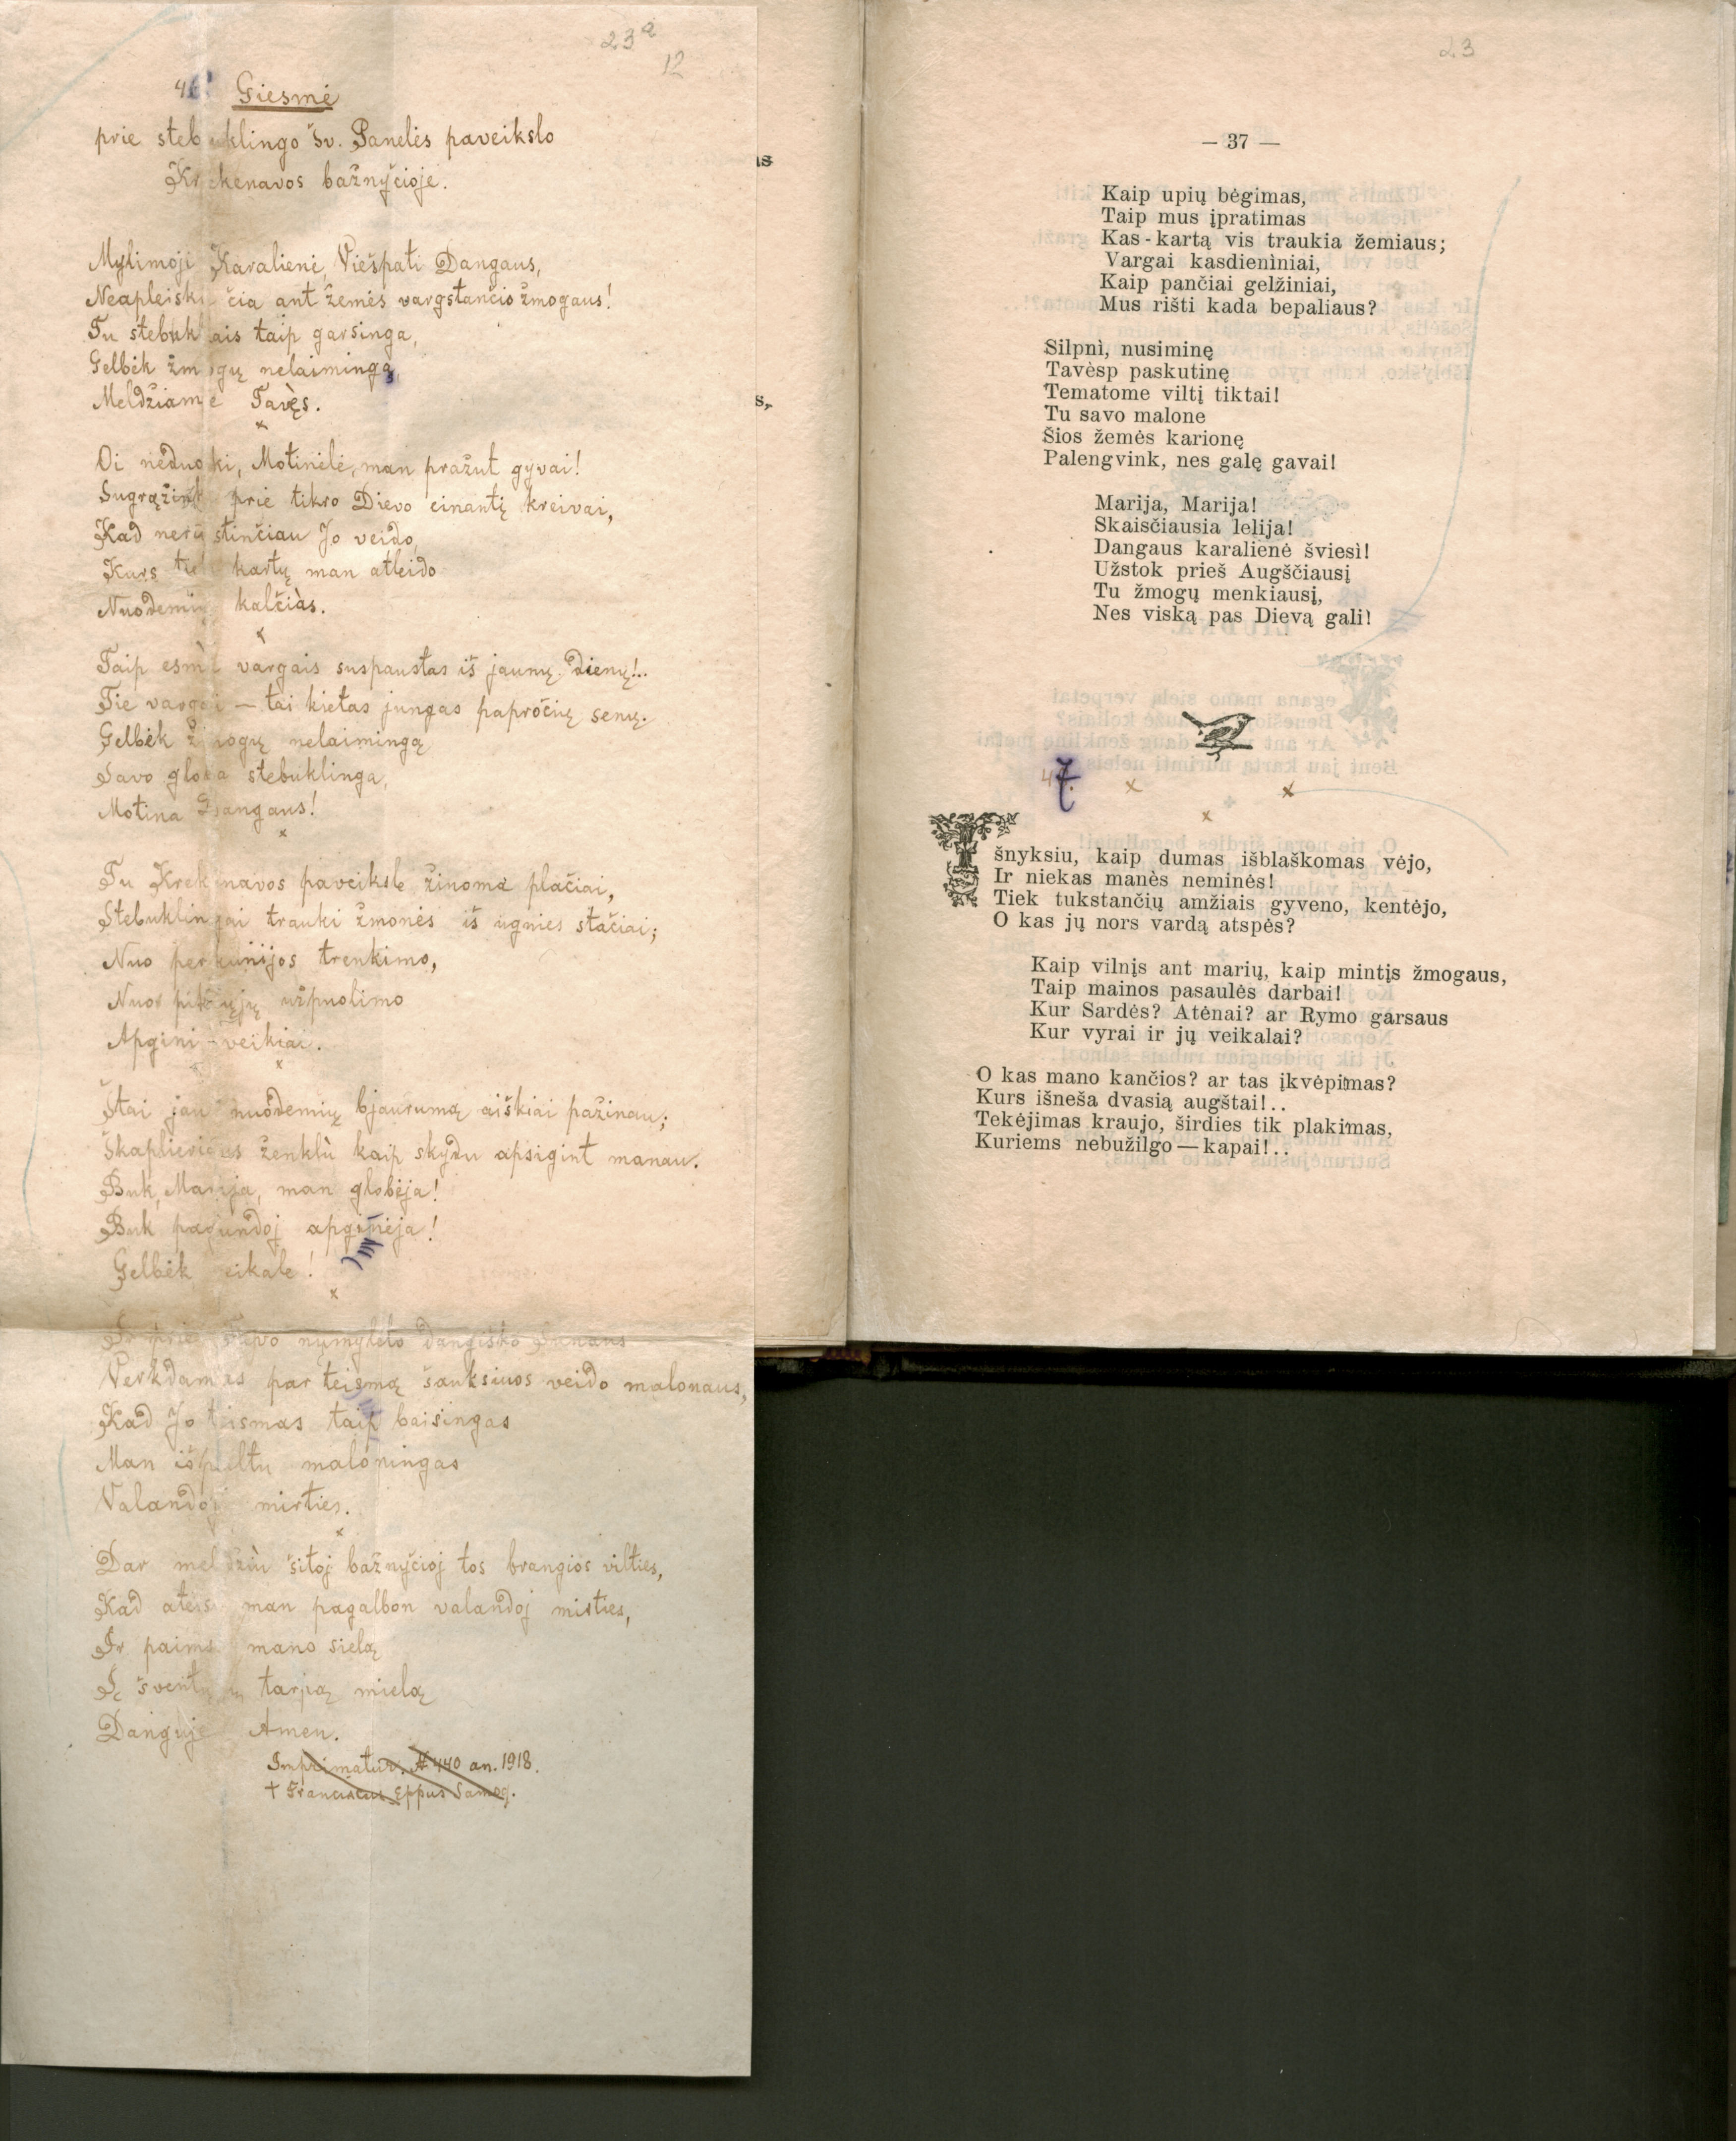 23a
12
46. Giesmė
prie stebuklingo Šv. Panelės paveikslo
Krekenavos bažnyčioje.
Mylimoji Karalienė, Viešpati Dangaus,
Neapleiski čia ant žemės vargstančio žmogaus!
Tu stebuklais taip garsinga,
Gelbėk žmogų nelaimingą,
Meldžiame Tavęs.
x
Oi neduoki, Motinėlė, man pražut gyvai!
Sugrąžink prie tikro Dievo einantį kreivai,
Kad nerūstinčiau Jo veido,
Kurs tiek kartų man atleido
Nuodemių kalčiàs.
x
Taip esmì vargais suspaustas iš jaunų dienų!..
Tie vargai — tai kietas jungas papročių senų.
Gelbėk žmogų nelaimingą
Savo globa stebuklinga,
Motina Dangaus!
x
Tu Krekenavos paveiksle žinoma plačiai,
Stebuklingai trauki žmonės iš ugnies stačiai;
Nuo perkunijos trenkimo,
Nuo piktųjų užpuolimo
Apgini veikiai.
x
Štai jau nuodemių bjaurumą aiškiai pažinau;
Škaplieriaus ženklù kaip skydu apsigint manau.
Buk, Marija, man globėja!
Buk pagundoj apginėja!
Gelbėk reikale!
x
Ir prie Tavo numylėto dangiško Sunaus
Verkdamas par teismą šauksiuos veido malonaus,
Kad Jo teismas taip baisingas
Man išpultų maloningas
Valandoj mirties.
x
Dar meldžiu šitoj bažnyčioj tos brangios vilties,
Kad ateisi man pagalbon valandoj mirties,
Ir paimsi mano sielą
Į šventųjų tarpą mielą
Danguje Amen.
Imprimatur. № 440 an. 1918.
† Franciscus Eppus Samog.
as
s,
23
— 37 —
Kaip upių bėgimas,
Taip mus įpratimas
Kas-kartą vis traukia žemiaus;
Vargai kasdieniniai,
Kaip pančiai gelžiniai,
Mus rišti kada bepaliaus?
Silpnì, nusiminę
Tavėsp paskutinę
Tematome viltį tiktai!
Tu savo malone
Šios žemės karionę
Palengvink, nes galę gavai!
Marija, Marija!
Skaisčiausia lelija!
Dangaus karalienė šviesì!
Užstok prieš Augščiausį
Tu žmogų menkiausį,
Nes viską pas Dievą gali!
47.
x x x
Išnyksiu, kaip dumas išblaškomas vėjo,
Ir niekas manès neminės!
Tiek tukstančių amžiais gyveno, kentėjo,
O kas jų nors vardą atspės?
Kaip vilnįs ant marių, kaip mintįs žmogaus,
Taip mainos pasaulės darbai!
Kur Sardės? Atėnai? ar Rymo garsaus
Kur vyrai ir jų veikalai?
O kas mano kančios? ar tas įkvėpimas?
Kurs išneša dvasią augštai!..
Tekėjimas kraujo, širdies tik plakimas,
Kuriems nebužilgo — kapai!..